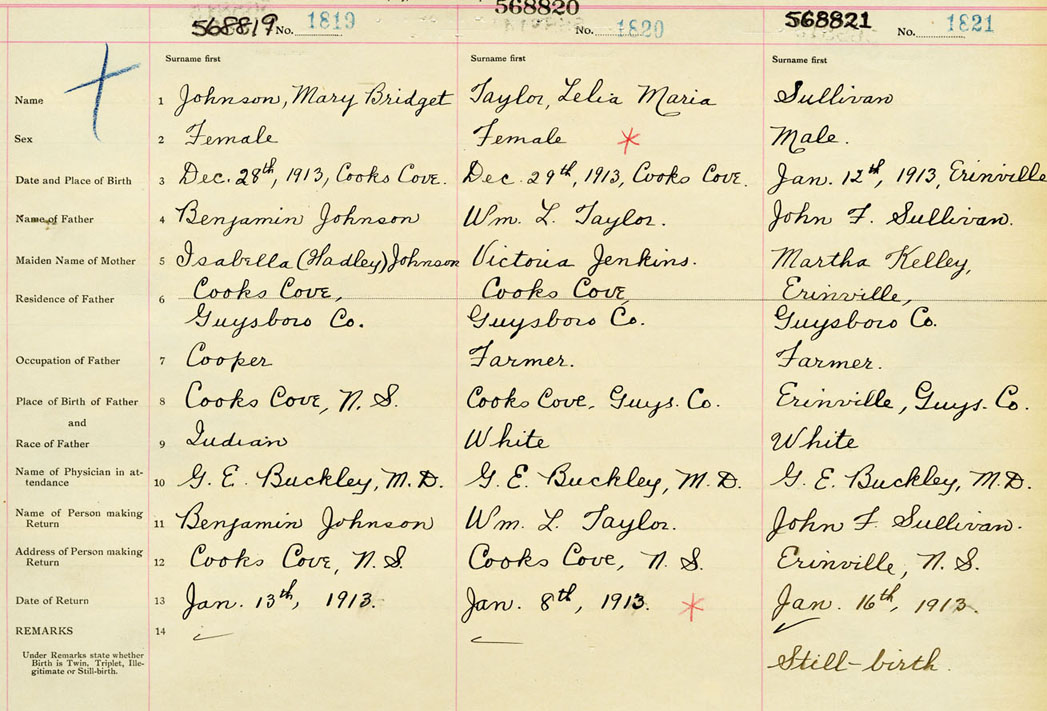 568819 No. 1819
568820 No. 1820
568821 No. 1821
Surname first Surname first Surname first
Name 1 Johnson, Mary Bridget Taylor, Lelia Maria Sullivan
Sex 2 Female Female * Male.
Date and Place of Birth 3 Dec. 28th, 1913, Cooks Cove. Dec. 29th, 1913, Cooks Cove. Jan. 12th, 1913, Erinville
Name of Father 4 Benjamin Johnson Wm. L. Taylor. John F. Sullivan.
Maiden Name of Mother 5 Isabella (Hadley) Johnson Victoria Jenkins. Martha Kelley,
Residence of Father 6 Cooks Cove, Cooks Cove, Erinville,
Guysboro Co. Guysboro Co. Guysboro Co.
Occupation of Father 7 Cooper Farmer. Farmer.
Place of Birth of Father 8 Cooks Cove, N.S. Cooks Cove, Guys. Co. Erinville, Guys. Co.
and
Race of Father 9 Indian White White
Name of Physician in at-
tendance 10 G. E. Buckley, M.D. G. E. Buckley, M.D. G. E. Buckley, M.D.
Name of Person making
Return 11 Benjamin Johnson Wm. L. Taylor. John F. Sullivan.
Address of Person making
Return 12 Cooks Cove, N.S. Cooks Cove, N.S. Erinville, N.S.
Date of Return 13 Jan. 13th, 1913. Jan. 8th, 1913. * Jan. 16th, 1913.
REMARKS 14
Under Remarks state whether
Birth is Twin, Triplet, Ille-
gitimate or Still-birth.
Still-birth.